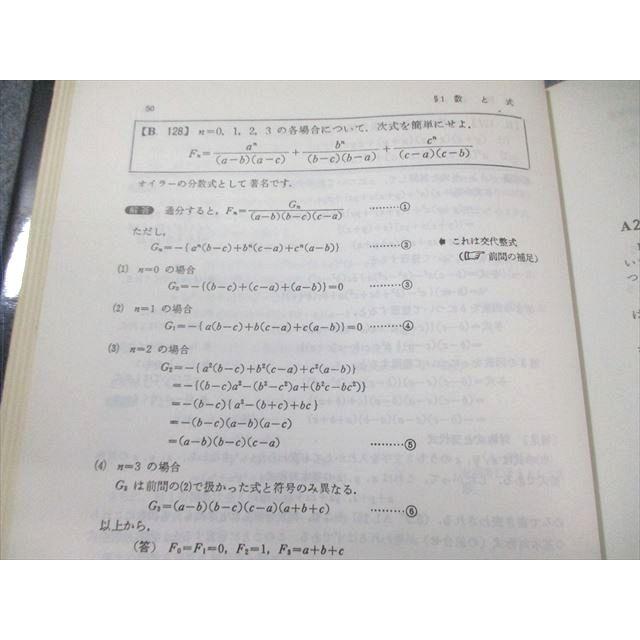 50
§1 数 と 式
【B. 128】 n=0, 1, 2, 3 の各場合について, 次式を簡単にせよ.
Fₙ= aⁿ/((a−b)(a−c)) + bⁿ/((b−c)(b−a)) + cⁿ/((c−a)(c−b))
オイラーの分数式として著名です.
解答 通分すると, Fₙ= Gₙ/((a−b)(b−c)(c−a)) ………①
ただし,
Gₙ=−{aⁿ(b−c)+bⁿ(c−a)+cⁿ(a−b)} ………②
これは交代整式
(☞ 前問の補足)
(1) n=0 の場合
G₀=−{(b−c)+(c−a)+(a−b)}=0 ………③
(2) n=1 の場合
G₁=−{a(b−c)+b(c−a)+c(a−b)}=0 ………④
(3) n=2 の場合
G₂=−{a²(b−c)+b²(c−a)+c²(a−b)}
=−{(b−c)a²−(b²−c²)a+(b²c−bc²)}
=−(b−c){a²−(b+c)+bc}
=−(b−c)(a−b)(a−c)
=(a−b)(b−c)(c−a) ………⑤
(4) n=3 の場合
G₃ は前問の(2)で扱かった式と符号のみ異なる.
G₃=(a−b)(b−c)(c−a)(a+b+c) ………⑥
以上から,
(答) F₀=F₁=0, F₂=1, F₃=a+b+c
A2
い
つ
は